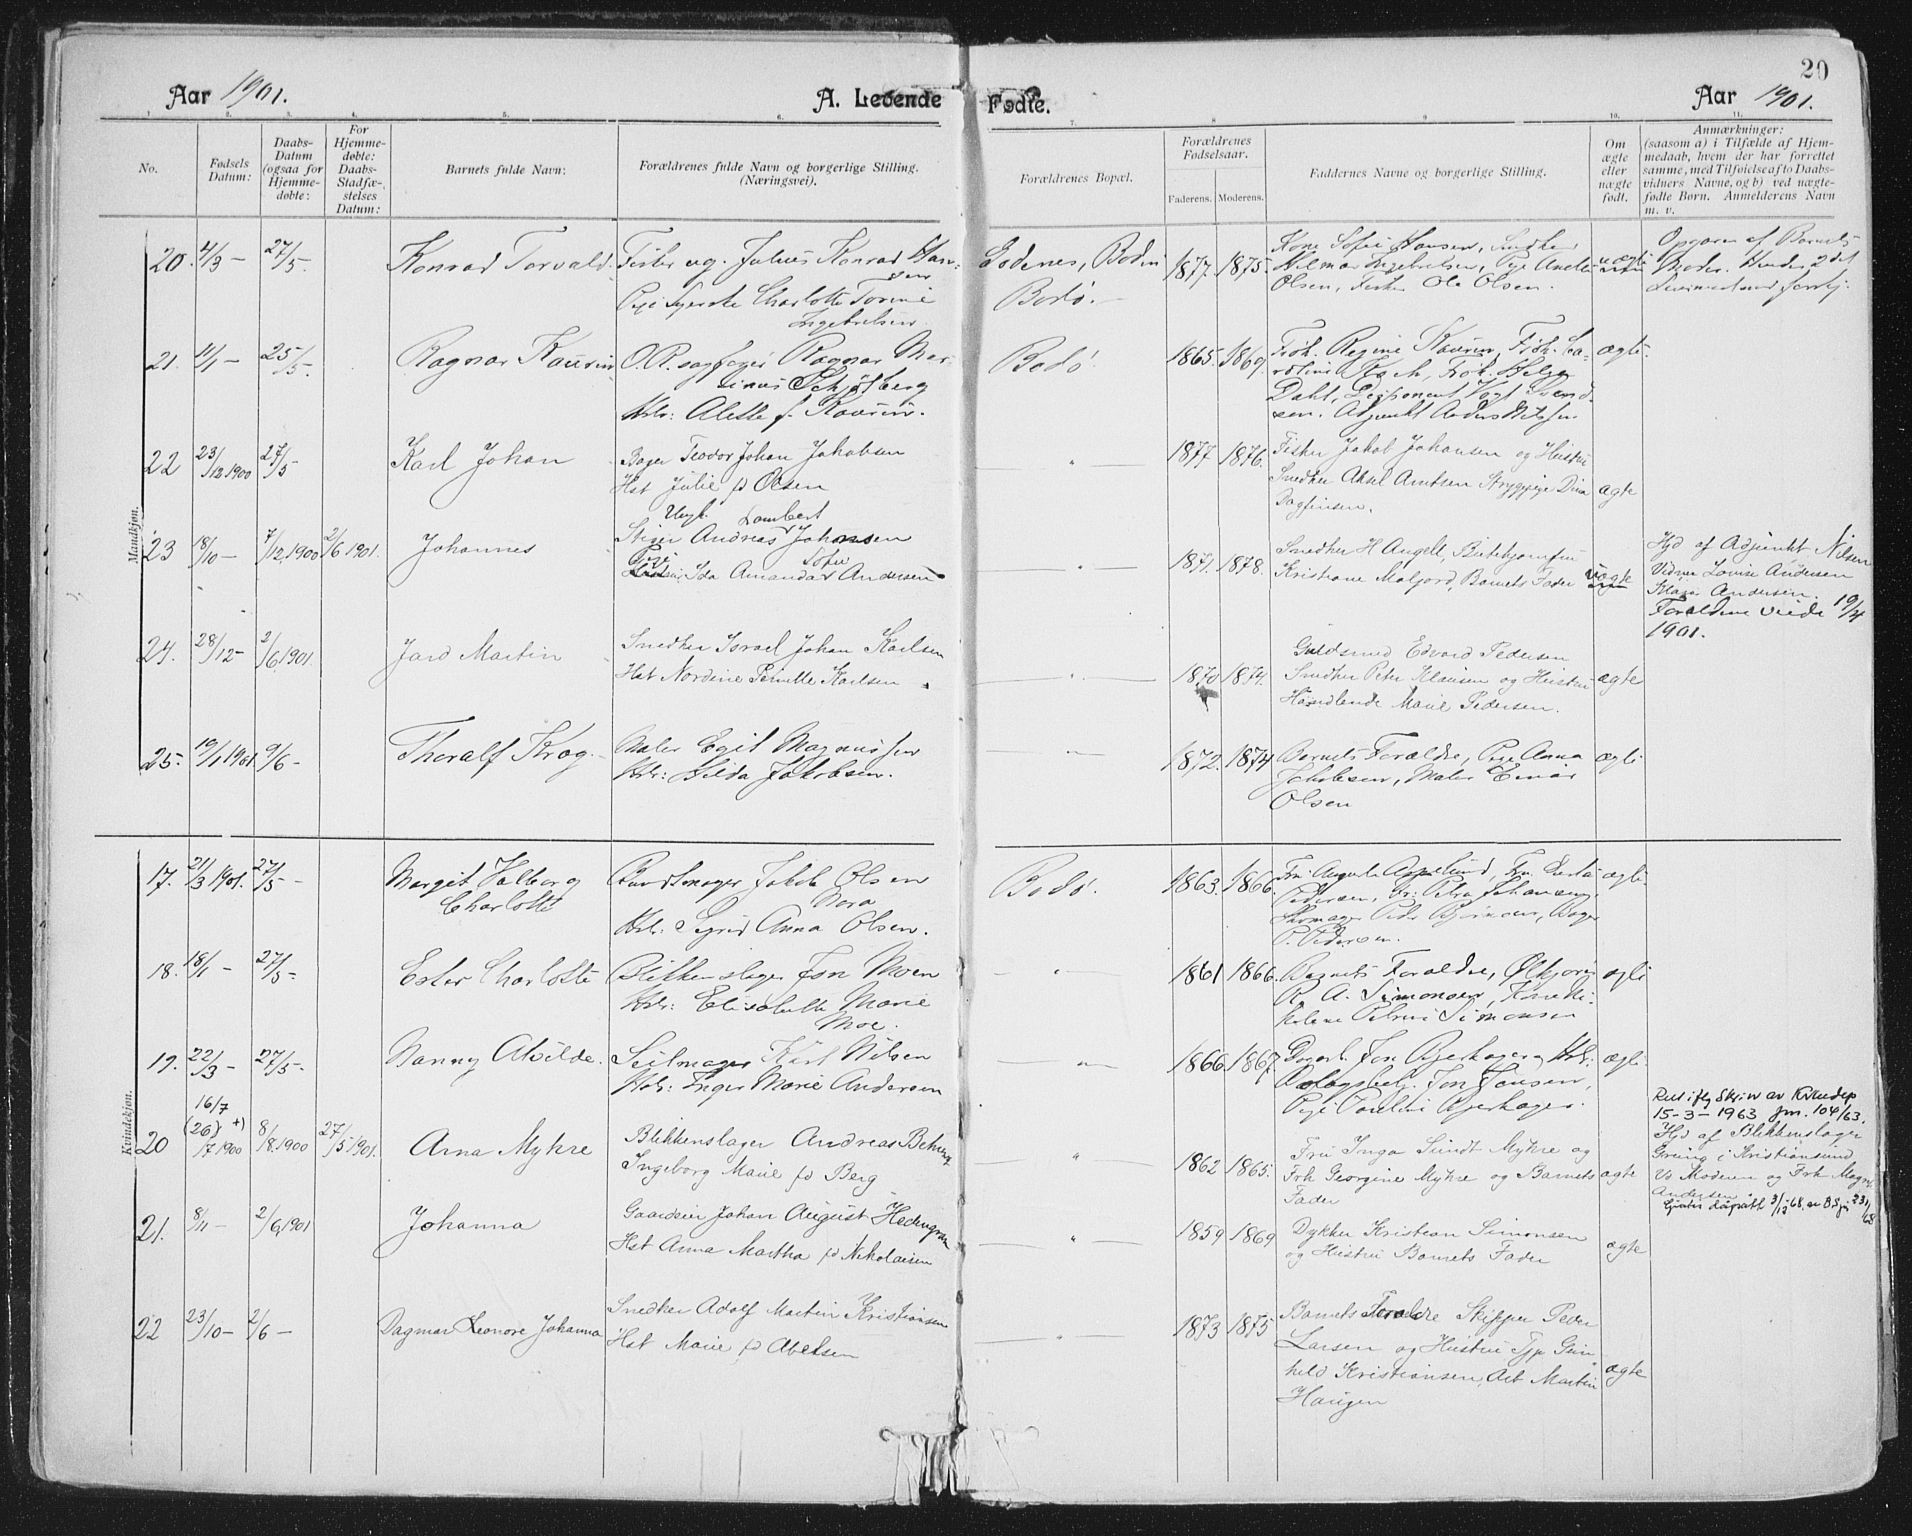 20
Aar 1901.
A. Levende
Fødte.
Aar 1901.
1. 2. 3. 4. 5. 6. 7. 8 9. 10. 11.
No.
Fødsels Datum:
Daabs-Datum (ogsaa for Hjemme-døbte:
For Hjemme-døbte: Daabs-Stadfæ-stelses Datum:
Barnets fulde Navn:
Forældrenes fulde Navn og borgerlige Stilling. (Næringsvei).
Forældrenes Bopæl.
Forældrenes Fødselsaar.
Faderens. Moderens.
Faddernes Navne og borgerlige Stilling.
Om ægte eller nægte født.
Anmærkninger:
(saasom a) i Tilfælde af Hjem-
medaab, hvem der har forrettet
samme, med Tilføielse af to Daabs-
vidners Navne, og b) ved nægte-
fødte Børn. Anmelderens Navn
m. v.
Mandkjøn.
20. 4/3 – 27/5. Konrad Torvald. Fisker ug. Julius Konrad Han-
sen
Pige Syerske Charlotte Torine
Ingebrigtsen.
Bodø. –
1877. 1875. Kone Sofie Hansen, Snedker
Hilmar Ingebretsen, Pige Amelie
Olsen, Fisker Ole Olsen.
uægte
Opgaven af Barnets
Moder. Hendes 2det
21. 11/1 – 25/5. Ragnar Kaurin O.R.sagfører Ragnar Mar-
tinus Schjølberg
Hstr: Alette f. Kaurin.
Bodø. 1865. 1869. Frøk. Regine Kaurin, Frøk. Ca-
roline Koch, Frøk. Helga
Dahl, Disponent Vogt Svend-
sen. Adjunkt Anders Nilsen
ægte.
22 23/12 1900 27/5 Karl Johan Bager Teodor Johan Jakobsen
Hst Julie f Olsen
– " – 1877 1876. Fisker Jakob Johansen og Hustru
Snedker Aksel Arntsen Strygepige Dina
Dagfinsen.
ægte
23 18/10 – 7/12 1900 2/6 1901. Johannes Ungk. Lambert
Andreas Johansen
Pige Sofie
Ida Amanda Andersen
– " – 1871. 1878. Snedker H Angell, Butikjomfru
Kristiane Maljord, Barnets Fader uægte
Hjd af Adjunkt Nilsen
Vidner Lovise Andersen
Andersen.
Forældrene viede 19/4
1901.
24. 28/12 – 2/6 1901. Jard Martin Snedker Israel Johan Karlsen
Hst Nordine Pernille Karlsen
– " – 1870 1874. Guldsmed Edvard Pedersen
Snedker Peter Klausen og Hustru
Handlende Marie Pedersen.
ægte
25 – 19/1 1901 9/6 – Thoralf Krog – Maler Egil Magnussen
Hstr: Hilda Jakobsen.
– " – 1872. 1874 Barnets Forældre, Pige Anna
Jakobsen, Maler Einar
Olsen
ægte
Kvindekjøn.
17. 21/3 1901. 27/5 – Margit Valborg
Charlotte
Bundtmager Jakob Olsen
Nora
Hstr: Sigrid Anna Olsen.
Bodø. 1863. 1866. Fru Augusta Asplund, Fru Berta
Pedersen, Fr: Petra Johansen,
Skomager Peder Bjørnsen, Bager
P. Pedersen.
ægte
18. 18/1 – 27/5 – Ester Charlotte Blikkenslager Jon Moen
Hstr: Elisabeth Marie
Moe.
– " – 1861 1866. Barnets Forældre, Ølkjører
R. A. Simonsen,
Petrine Simonsen
ægte
19. 22/3 – 27/5 – Nanny Alvilde. Seilmager Karl Nilsen
Hstr: Inger Marie Andersen
– " – 1866. 1867. Jon Bjerkager og Hstr:
Jon Jensen,
Pige Pauline Bjerkager.
ægte
20 16/7
(26) +)
/7 1900 8/8. 1900 27/5 1901. Arna Myhre Blikkenslager Andreas
Ingeborg Marie f Berg
– " – 1862 1865. Fru Inga Sundt Myhre og
Frk Georgine Myhre og Barnets
Fader
ægte
Ret iflg Skriv av Kirkedep
15-3-1963 Jnr. 104/63.
Hjd af Blikkenslager
Greung i Kristiansund
Vi Moderen og Frk Magn.
Andersen
21. 8/11 – 2/6 1901 Johanna Gaardeier Johan August Hedengran
Hst Anna Martha f Nikolaisen
– " – 1859 1869 Dykker Kristian Simonsen
og Hustru Barnets Fader
ægte
22 23/10 – 2/6 – Dagmar Leonore Johanna Snedker Adolf Martin Kristiansen
Hst Marie f Abelsen
– " – 1873 1875 Barnets Forældre Skipper Peder
Larsen og Hustru Tjp Gun-
hild Kristiansen, Arb Martin
Haugen
ægte